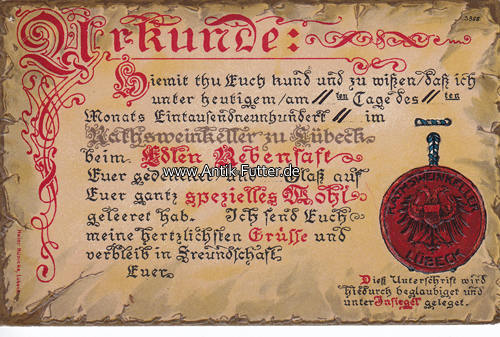 5388
Urkunde:
Hiemit thu Euch kund und zu wißen/daß ich
unter heutigem/am "ten Tage des "ten
Monats Eintausendneunhundert " im
Rathsweinkeller zu Lübeck
beim Edlen Rebensaft
www.Antik-Futter.de
Euer gedenket und ein Glaß auf
Euer gantz spezielles Wohl
geleeret hab. Ich send Euch
meine hertzlichsten Grüsse und
verbleib in Freundschaft
Euer
RATHSWEINKELLER
LÜBECK
Dieß Unterschrift wird
hiedurch beglaubiget und
unter Insiegel geleget.